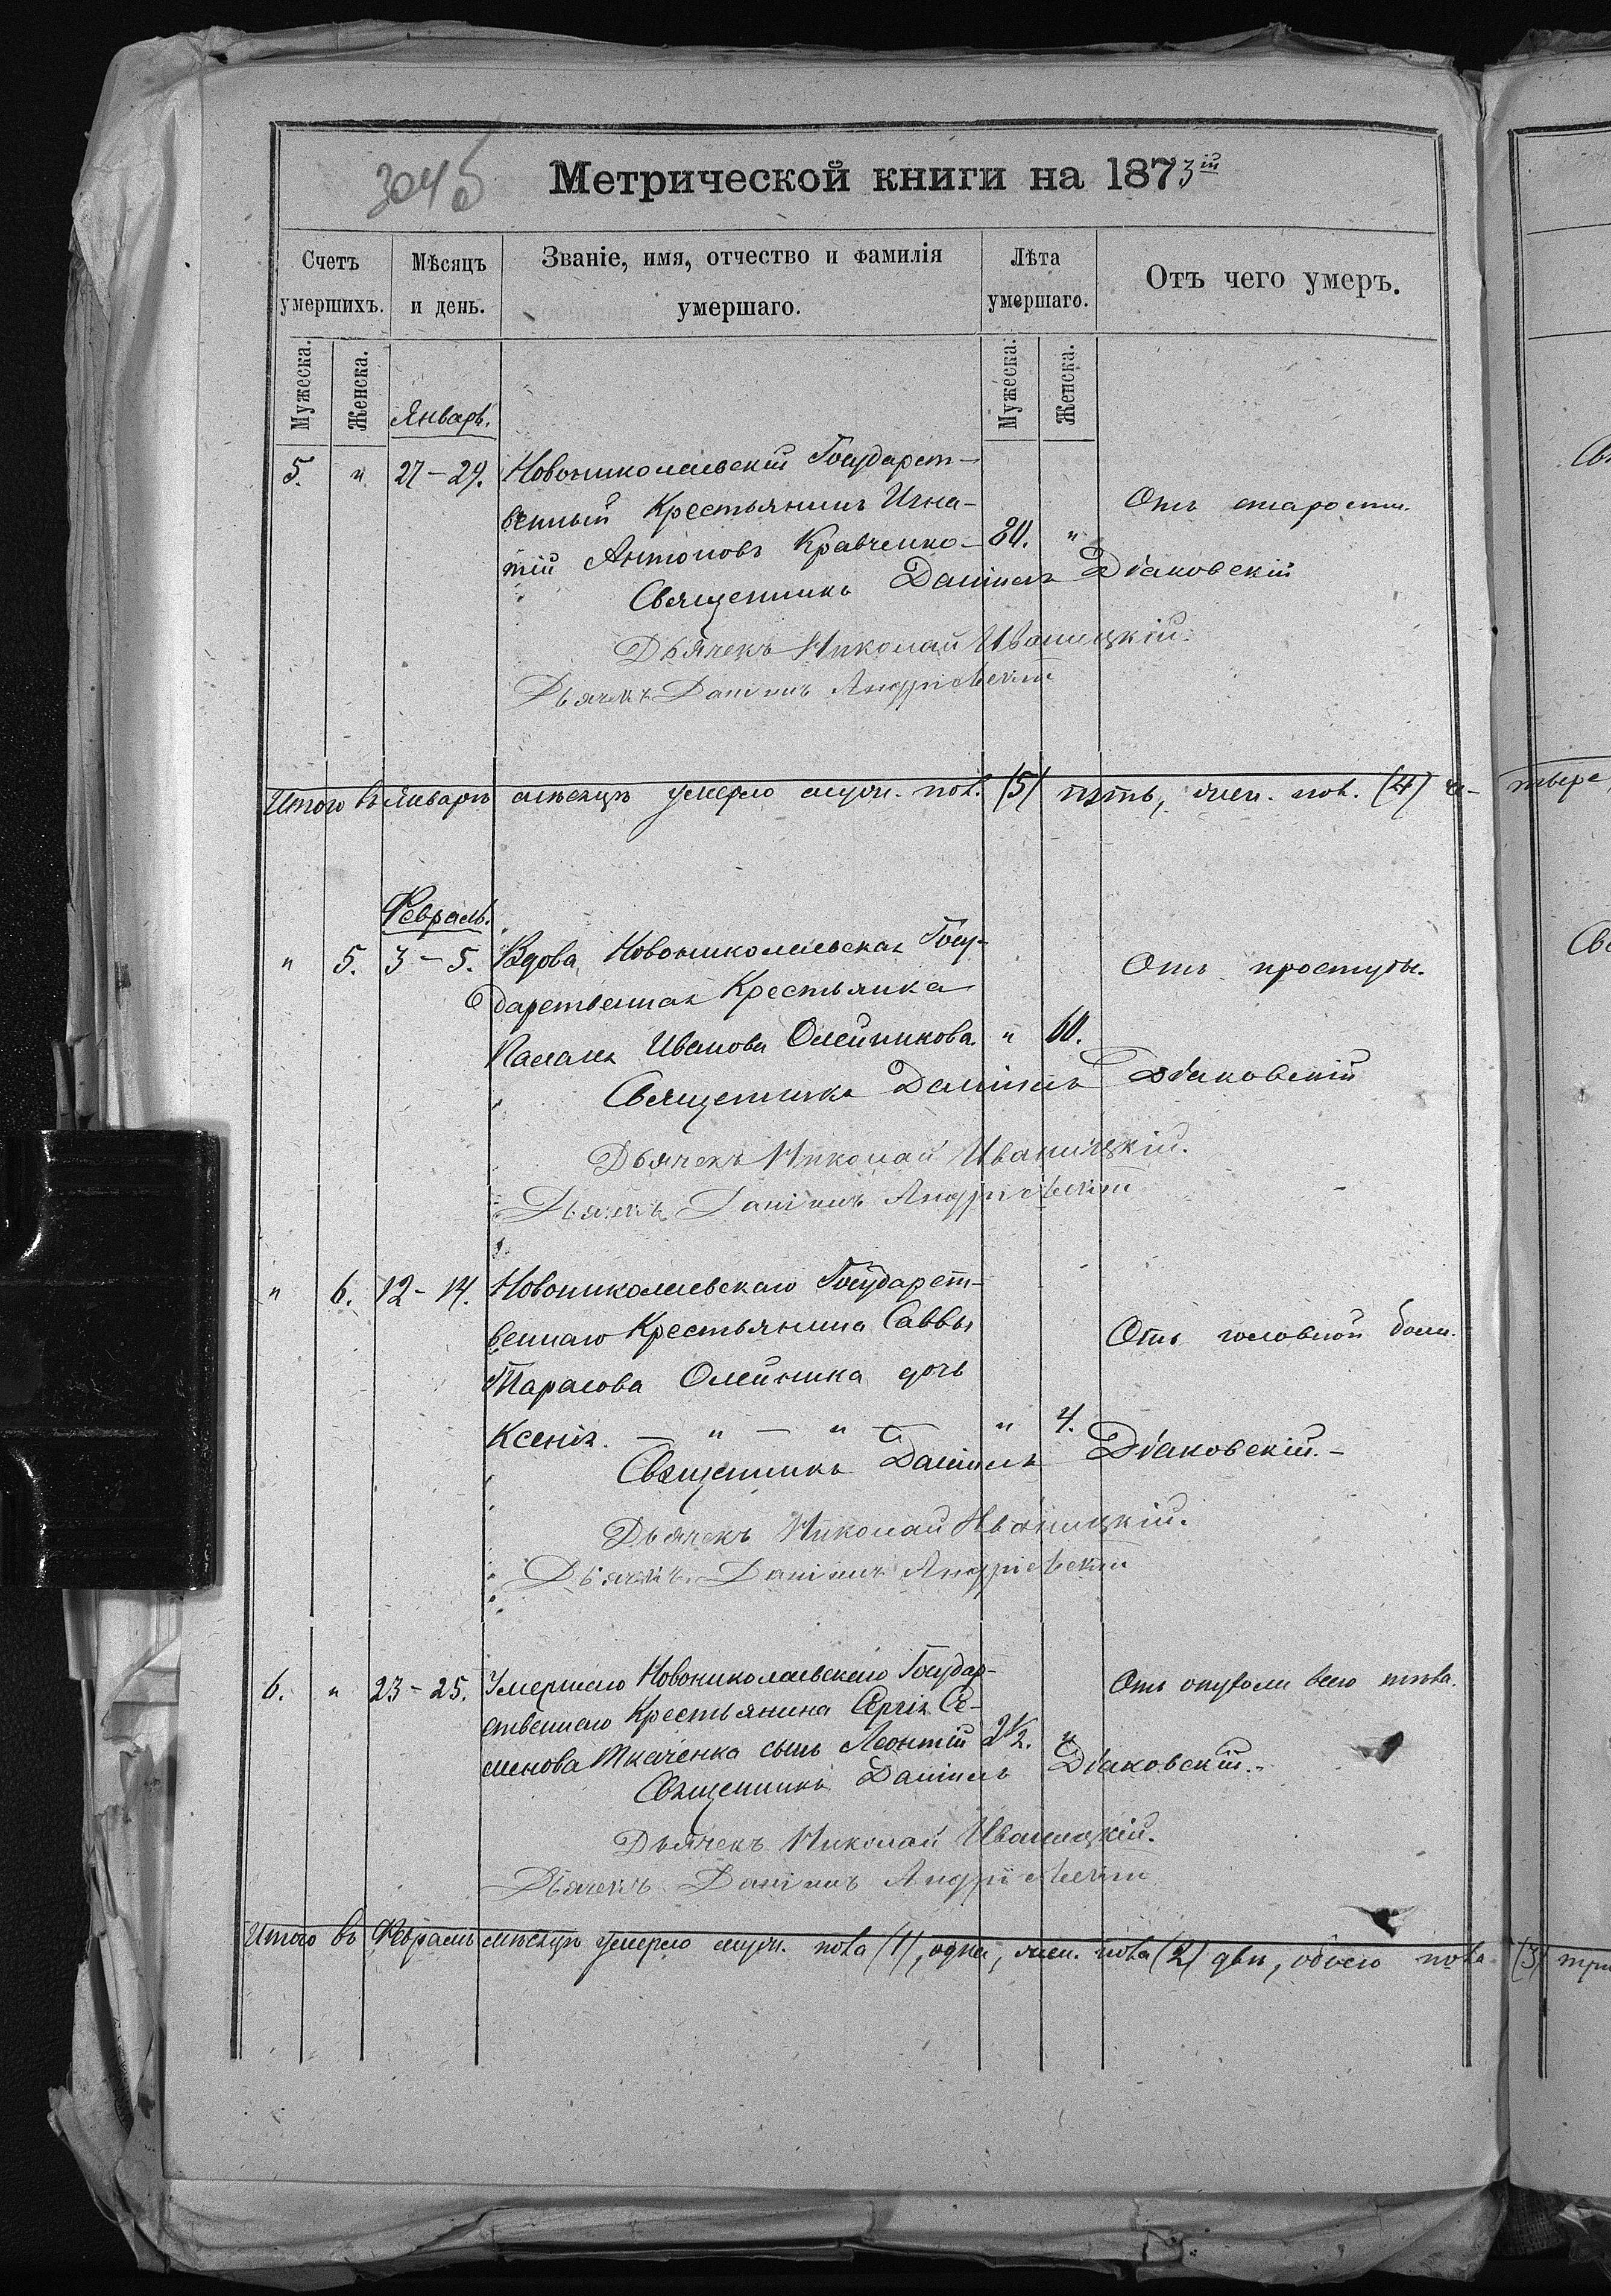 304б
Метрической книги на 1873ій
Счетъ умершихъ.
Мѣсяцъ и день.
Званіе, имя, отчество и фамилія умершаго.
Лѣта умершаго.
Отъ чего умеръ.
Мужеска.
Женска.
Мужеска.
Женска.
Январь.
5. " 27-29. Новониколаевскій Государст-
венный Крестьянинъ Игна- Отъ старости.
тій Антоновъ Кравченко- 80. "
Священникъ Даніилъ Дьаковскій
Дьячекъ Николай Иваницкій.
Дьячекъ Даніилъ Андріевскій
Итого въ Январѣ мѣсяцѣ умерло муж. пол. (5) пять, жен. пол. (4) че-
тыре,
Февраль.
" 5. 3-5. Вдова Новониколаевская Госу- Отъ простуды.
дарственная Крестьянка
Иванова Олейникова. " 60.
Священникъ Даніилъ Дьаковскій
Дьячекъ Николай Иваницкій.
Дьячекъ Даніилъ Андріевскій
" 6. 12-14. Новониколаевскаго Государст-
веннаго Крестьянина Саввы Отъ головной боли.
Тарасова Олейника дочь
Ксенія. — " — " — " 4.
Священникъ Даніилъ Дьаковскій.-
Дьячекъ Николай Иваницкій.
Дьячекъ Даніилъ Андріевскій
6. " 23-25. Умершаго Новониколаевскаго Государ- Отъ опухоли всего тѣла.
ственнаго Крестьянина Сергія Се-
менова Ткаченка сынъ Леонтій 2½. "
Священникъ Даніилъ Дьаковскій.-
Дьячекъ Николай Иваницкій.
Дьячекъ Даніилъ Андріевскій
Итого въ Февралѣ мѣсяцѣ умерло муж. пола (1), одна, жен. пола (2) двѣ, обоего пола (3) три